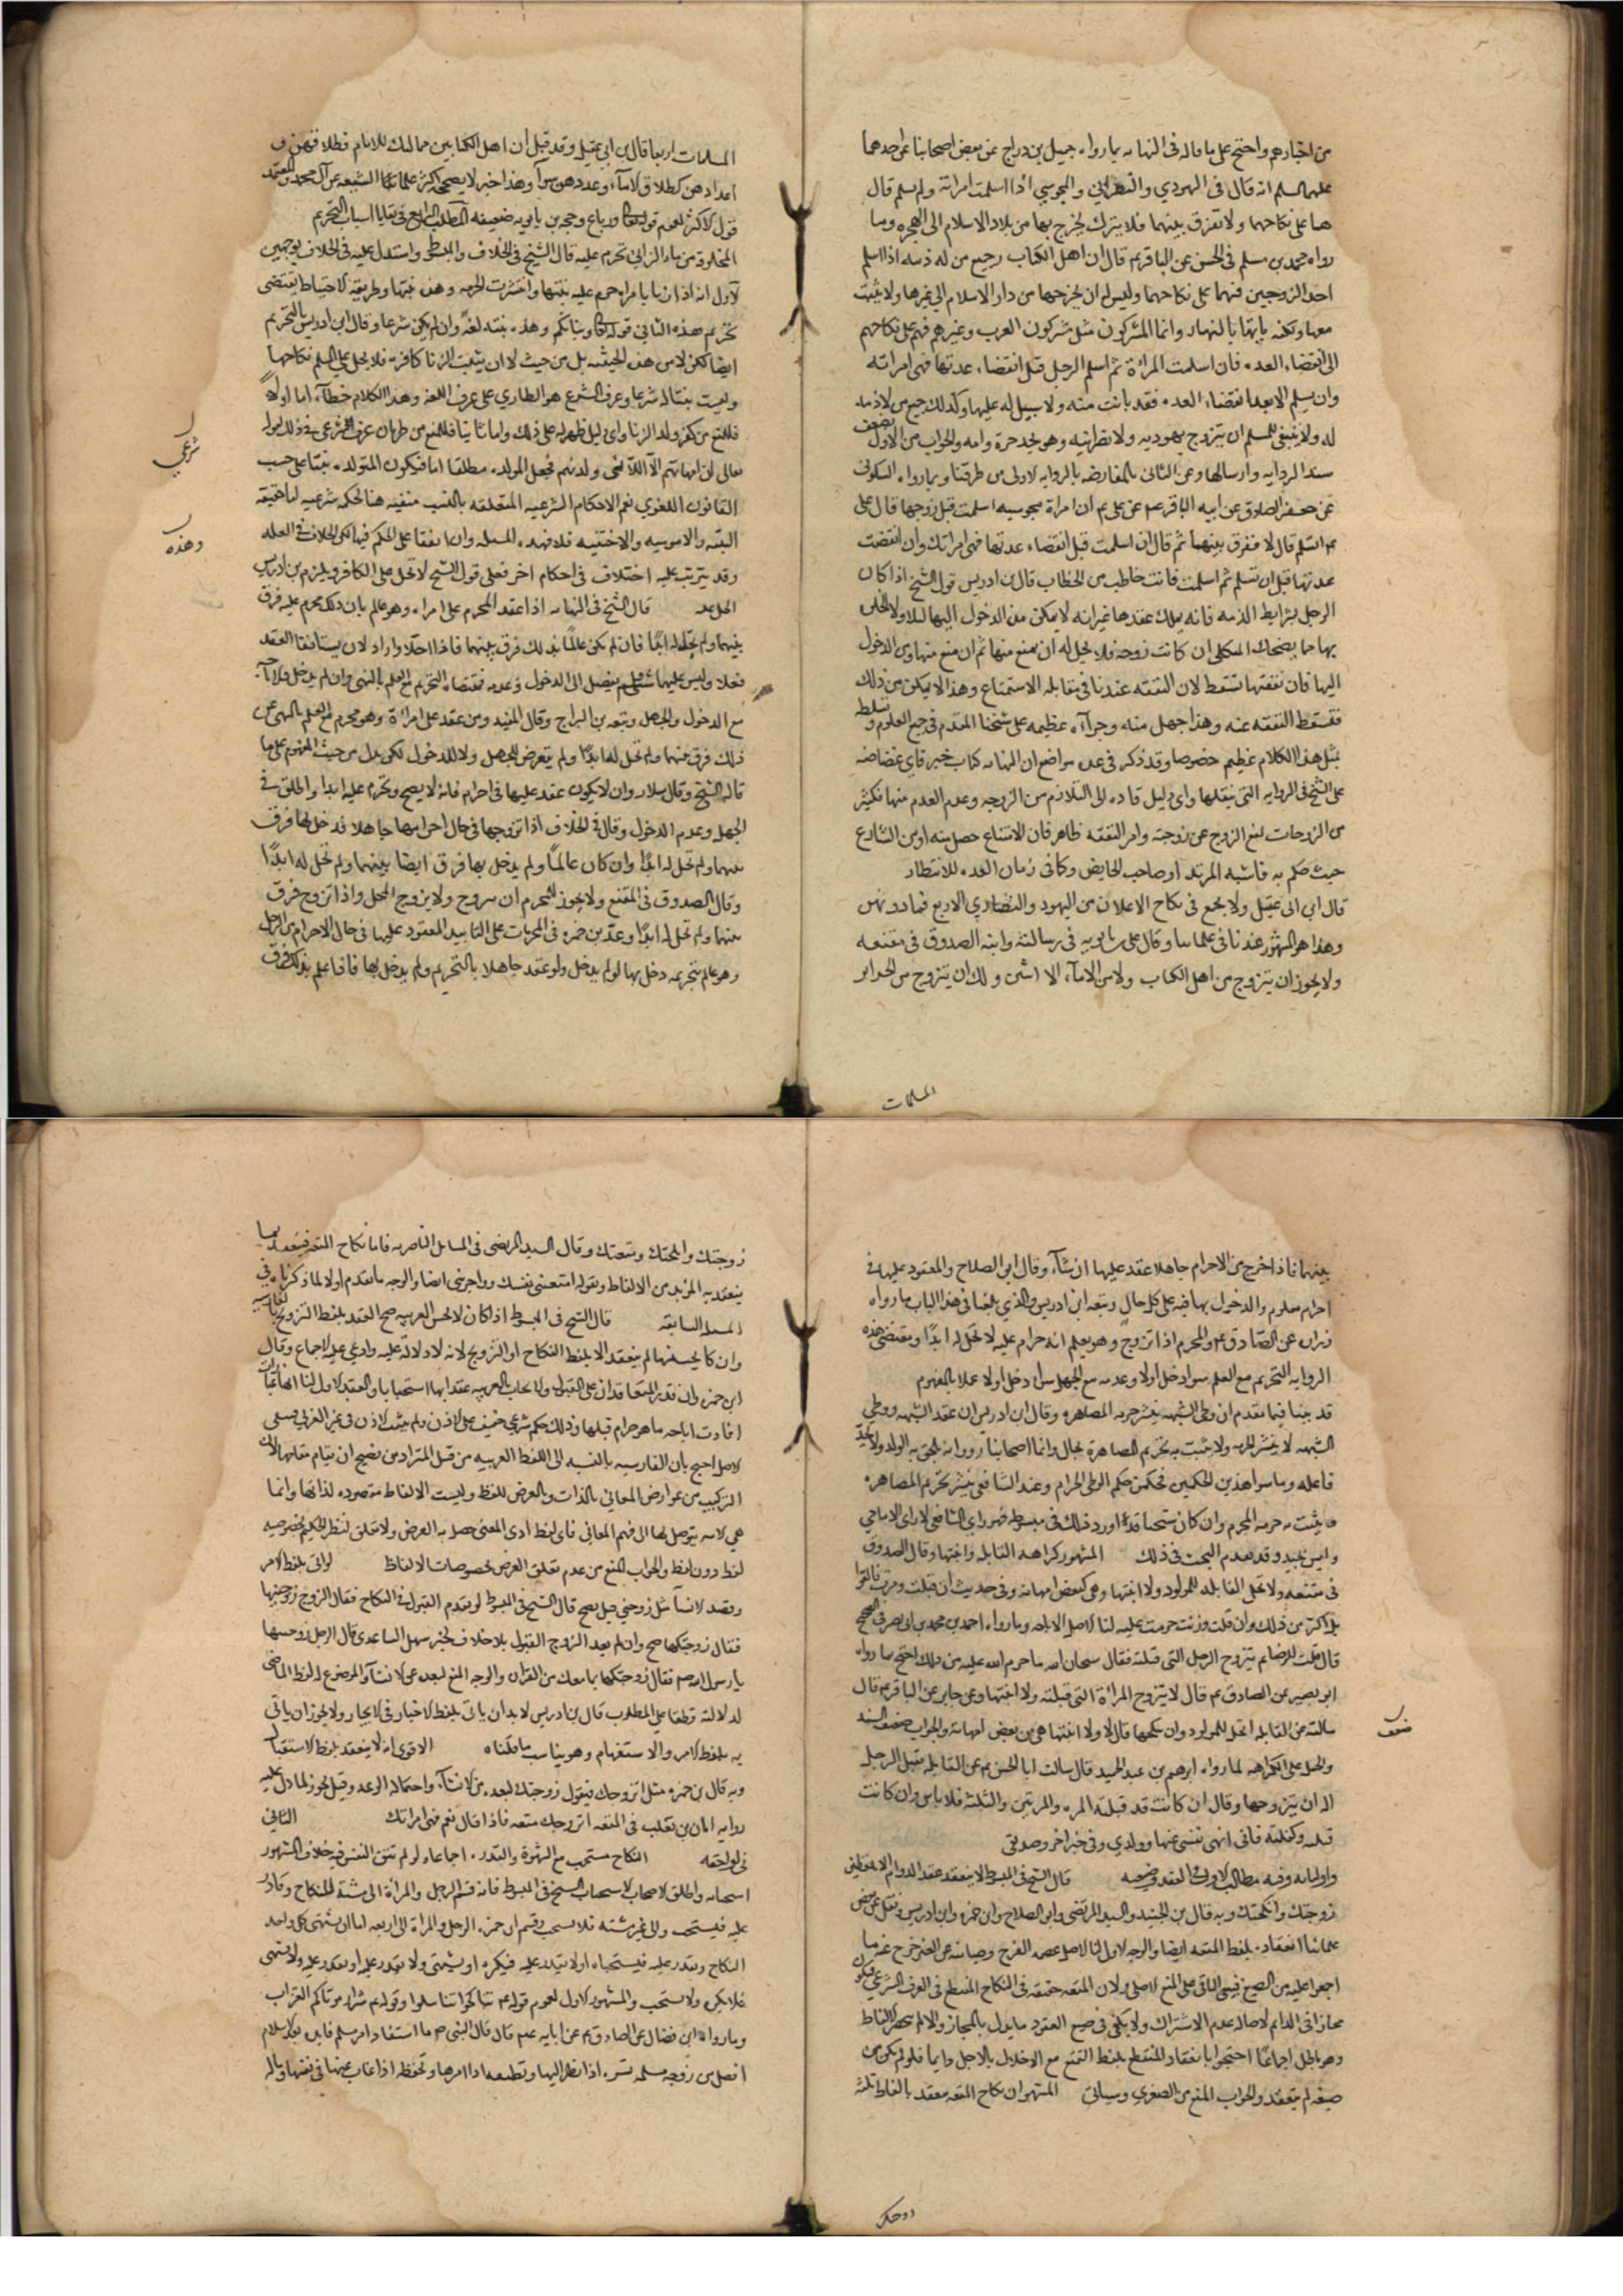 من اخبارهم واحتج على ما قاله فى النهايه بما رواه جميل بن دراج عن بعض اصحابنا عن احدهما
عليهما السلم انه قال فى اليهودي والنصراني والمجوسي اذا اسلمت امراته ولم يسلم قال
هما على نكاحهما ولا تفرق بينهما فلا يترك يخرج بها من بلاد الاسلام الى الهجره وبما
رواه محمد بن مسلم فى الحسن عن الباقر عم قال ان اهل الكتاب وجميع من له ذمه اذا اسلم
احد الزوجين فهما على نكاحهما وليس له ان يخرجها من دار الاسلام الى غيرها ولا يبيت
معها ولكنه ياتيها بالنهار وانما المشركون مثل مشركون العرب وغيرهم فهم على نكاحهم
الى انقضاء العده فان اسلمت المراة ثم اسلم الرجل قبل انقضاء عدتها فهى امراته
وان لم يسلم الا بعد انقضاء العده فقد بانت منه ولا سبيل له عليها وكذلك جميع من لا ذمه
له ولا ينبغي للمسلم ان يتزوج يهوديه ولا نصرانيه وهو يجد حرة وامه والجواب عن الاول بضعف
سند الروايه وارسالها وعن الثانى بالمعارضه بالروايه الاولى من طرقنا وبما رواه السكونى
عن جعفر الصادق عن ابيه الباقر عم عن على عم ان امراة مجوسيه اسلمت قبل زوجها قال على
عم اتسلم قال لا ففرق بينهما ثم قال ان اسلمت قبل انقضاء عدتها فهى امراتك وان انقضت
عدتها قبل ان تسلم ثم اسلمت فانت خاطب من الخطاب قال بن ادريس قول الشيخ اذا كان
الرجل بشرايط الذمه فانه يملك عقدها غير انه لا يمكن من الدخول اليها ليلا ولا الخلو
بها مما يضحك الثكلى ان كانت زوجته فلا يحل له ان يمنع منها ثم ان منع منها ومن الدخول
اليها فان نفقتها تسقط لان النفقه عندنا فى مقابله الاستمتاع وهذا لا يمكن من ذلك
فتسقط النفقه عنه وهذا جهل منه وجراه عظيمه على شيخنا المقدم فى جميع العلوم وتسلط
بمثل هذا الكلام عظيم خصوصا وقد ذكر فى عده مواضع ان النهايه كتاب خبر فاي غضاضه
على الشيخ فى الروايه التى ينقلها واي دليل قاده الى التلازم بين الزوجه وعدم العدم منها فكثير
من الزوجات يمنع الزوج عن زوجته وامر النفقه ظاهر فان الامتناع حصل منه او من الشارع
حيث حكم به فاشبه المرتد او صاحب الحايض وكانى زمان العده للانتظار
قال ابن ابى عقيل ولا يجمع فى نكاح الاعلان من اليهود والنصاري الا اربع فما دونهن
وهذا هو المشهور عندنا فى علمائنا وقال على بن بابويه فى رسالته وابنه الصدوق فى مقنعه
ولا يجوز ان يتزوج من اهل الكتاب ولا من الاماء الا اثنتين ولك ان تتزوج من الحراير
المسلمات
المسلمات اربعا قال بن ابى عقيل وقد قيل ان اهل الكتابين مماليك للامام فطلاقهن و
اعدادهن كطلاق الاماء وعددهن سواء وهذا خبر لا يصححه اكثر علمائنا الشيعه عن آل محمد والمعتمد
قول الاكثر لعموم قوله تعالى ورباع وحجه بن بابويه ضعيفه المطلب الرابع فى بقايا اسباب التحريم
المخلوقه من ماء الزانى تحرم عليه قال الشيخ فى الخلاف والمبسوط واستدل عليه فى الخلاف بوجهين
الاول انه اذا زنا بامراه حرم عليه بنتها وانتشرت الحرمه وهذه بنتها وطريقه الاحتياط تقتضى
تحريم هذه الثانى قوله تعالى وبناتكم وهذه بنته لغة وان لم يكن شرعا وقال ابن ادريس بالتحريم
ايضا لكن لا من هذه الحيثيه بل من حيث ان بنت الزنا كافره فلا يحل على المسلم نكاحها
وليست بنتا له شرعا وعرف الشرع هو الطاري على عرف اللغه وهذا الكلام خطا اما اولا
فللمنع من كفر ولد الزنا واي دليل ظهر له على ذلك واما ثانيا فللمنع من طريان عرف الشرعى فى ذلك لقوله
تعالى ان امهاتهم الا اللائى ولدنهم فجعل المولده مطلقا اما فيكون المتولده بنتا على حسب
القانون اللغوي نعم الاحكام الشرعيه المتعلقه بالنسب منفيه هنا لحكمه شرعيه اما حقيقه
البنتيه والامويه والاختيه فلا فهذه المسله وان اتفقا على الحكم فيها لكن الخلاف فى العله
وقد يترتب عليه اختلاف فى احكام اخر فعلى قول الشيخ لا تحل على الكافر ويلزم بن ادريس
الحل له قال الشيخ فى النهايه اذا عقد المحرم على امراه وهو عالم بان ذلك محرم عليه فرق
بينهما ولم تحل له ابدا فان لم يكن عالما بذلك فرق بينهما فاذا احلا واراد ان يستانفا العقد
فعلا وليس عليهما شىء ولم يفصل الى الدخول وعدمه فمقتضاه التحريم مع العلم بالنهى وان لم يدخل وعدمه
مع الدخول والجهل وتبعه بن البراج وقال المفيد ومن عقد على امراة وهو محرم مع العلم بالنهى عن
ذلك فرق بينهما ولم تحل له ابدا ولم يتعرض للجهل ولا للدخول لكن يدل من حيث المفهوم على ما
قاله الشيخ وقال سلار وان لا يكون عقد عليها فى احرام فانه لا يصح وتحرم عليه ابدا واطلق فى
الجهل وعدم الدخول وقال فى الخلاف اذا تزوجها فى حال احرامها جاهلا فدخل بها فرق
بينهما ولم تحل له ابدا وان كان عالما ولم يدخل بها فرق ايضا بينهما ولم تحل له ابدا
وقال الصدوق فى المقنع ولا يجوز للمحرم ان يتزوج ولا يزوج المحل واذا تزوج فرق
بينهما ولم تحل له ابدا وعد بن حمزه فى المحرمات على التابيد المعقود عليها فى حال الاحرام من الرجل
وهو عالم بتحريمه دخل بها او لم يدخل ولو عقد جاهلا بالتحريم ولم يدخل بها فاذا علم بذلك فرق
شرعي
وهذه
بينهما فاذا خرج من الاحرام جاهلا عقد عليها ان شاء وقال ابو الصلاح والمعقود عليها فى
احرام معلوم والدخول بها فيه على كل حال وتبعه ابن ادريس والذي بلغنا فى هذا الباب ما رواه
زراره عن الصادق عم والمحرم اذا تزوج وهو يعلم انه حرام عليه لا تحل له ابدا ومقتضى هذه
الروايه التحريم مع العلم سواء دخل اولا وعدمه مع الجهل سواء دخل اولا عملا بالمفهوم
قد بينا فيما تقدم ان وطى الشبهه ينشر حرمه المصاهره وقال ابن ادريس ان عقد الشبهه ووطي
الشبهه لا ينشر الحرمه ولا يثبت به تحريم المصاهرة بحال وانما اصحابنا رووا انه يلحق به الولد ولا يحد
فاعله وما سوا هذين الحكمين فحكمه حكم الوطى الحرام وعند الشافعى ينشر تحريم المصاهره
ويثبت به حرمه المحرم وان كان شيخنا قد اورد ذلك فى مبسوطه فهو راي الشافعى لا راي الامامي
وليس بجيد وقد تقدم البحث فى ذلك المشهور كراهه القابله وابنتها وقال الصدوق
فى مقنعه ولا تحل القابله للمولود ولا ابنتها وهى كبعض امهاته وفى حديث ان قبلت ومرت فالقوابل
اكثر من ذلك وان قبلت وربت حرمت عليه لنا الاصل الاباحه وما رواه احمد بن محمد بن ابى نصر فى الصحيح
قال قلت للرضا عم يتزوج الرجل التى قبلته فقال سبحان الله ما حرم الله عليه من ذلك احتج بما رواه
ابو بصير عن الصادق عم قال لا يتزوج المراة التى قبلته ولا ابنتها وعن جابر عن الباقر عم قال
سالته عن القابله اتحل للمولود ان ينكحها قال لا ولا ابنتها هى من بعض امهاته والجواب ضعف السند
والحمل على الكراهه لما رواه ابرهيم بن عبد الحميد قال سالت ابا الحسن عم عن القابله تقبل الرجل
اله ان يتزوجها وقال ان كانت قد قبلته المره والمرتين والثلثه فلا باس وان كانت
قبلته وكفلته فانى انهى نفسى عنها وولدي وفى خبر اخر وصديقى
وفيه مطالب الاول فى العقد قال الشيخ فى المبسوط لا ينعقد عقد الدوام الا بلفظين
زوجتك وانكحتك وبه قال بن الجنيد والسيد المرتضى وابو الصلاح وابن حمزه وابن ادريس ونقل عن بعض
علمائنا انعقاده بلفظ المتعه ايضا والوجه الاول لنا الاصل عصمه الفرج وصيانته عن الغير خرج عنه ما
اجمعوا عليه من الصيغ فيبقى الباقى على المنع الاصلى ولان المتعه حقيقه فى النكاح المنقطع فى العرف الشرعى فيكون
مجازا فى الدايم لاصاله عدم الاشتراك ولا يكفى فى صيغ العقود ما يدل بالمجاز والا لم تنحصر الالفاظ
وهو باطل اجماعا احتجوا بانعقاد المنقطع بلفظ التمتع مع الاخلال بالاجل دايما فلو لم يكن من
صيغه لم ينعقد والجواب المنع من الصغرى وسياتى المشهور ان نكاح المتعه منعقد بالفاظ ثلثه
ضعف
زوجتك
زوجتك وانكحتك ومتعتك وقال السيد المرتضى فى المسايل الناصريه فاما نكاح المتعه فينعقد بما
ينعقد به المؤبد من الالفاظ وبقوله امتعينى نفسك وواجرينى ايضا والوجه ما تقدم اولا لما ذكرناه فى
المسله السابقه قال الشيخ فى المبسوط اذا كان لا يحسن العربيه صح العقد بلفظ التزويج بالفارسيه
وان كان يحسنها لم ينعقد الا بلفظ النكاح او التزويج لانه لا دلالة عليه وادعى عليه الاجماع وقال
ابن حمزه وان قدر المتعاقدان على القبول والايجاب بالعربيه عقدا بها استحبابا والمعتمد الاول لنا انها
افادت اباحه ما هو حرام قبلها وذلك حكم شرعي فيقف على الاذن ولم يثبت الاذن فى غير العربى فيبقى على
الاصل احتج بان الفارسيه بالنسبه الى اللفظ العربيه من قبل المترادف فيصح ان يقام مقامها لان
التركيب من عوارض المعانى بالذات وبالعرض للفظ وليست الالفاظ مقصوده لذاتها وانما
هى لامه يتوصل بها الى فهم المعانى فاي لفظ ادى المعنى حصل به الغرض ولا تعلق لنظر الحكيم بخصوصيه
لفظ دون لفظ والجواب المنع من عدم تعلق الغرض بخصوصات الالفاظ لو اتى بلفظ الامر
وقصد الانشاء مثل زوجنى قيل يصح قال الشيخ فى المبسوط لو تقدم القبول فى النكاح فقال الزوج زوجنيها
فقال زوجتكها صح وان لم يعد الزوج القبول بلا خلاف لخبر سهل الساعدى قال الرجل زوجنيها
يا رسول الله صم فقال زوجتكها بما معك من القران والوجه المنع لبعده عن الانشاء والموضوع له لفظ الماضى
لدلالته قطعا على المطلوب قال بن ادريس لا بد ان ياتى بلفظ الاخبار فى الايجاب ولا يجوز ان ياتى
به بلفظ الامر والاستفهام وهو يناسب ما قلناه الاقوى انه لا ينعقد بلفظ الاستقبال
وبه قال بن حمزه مثل اتزوجك فيقول زوجتك لبعده عن الانشاء واحتماله الوعد وقيل يجوز لما دل عليه
روايه ابان بن تغلب فى المتعه اتزوجك متعه فاذا قال نعم فهى امراتك الثانى
فى لواحقه النكاح مستحب مع الشهوة والقدره اجماعا ولو لم تتق النفس فيه خلاف المشهور
استحبابه واطلق الاصحاب الاستحباب الشيخ فى المبسوط فانه قسم الرجل والمراة الى مشته للنكاح وقادر
عليه فيستحب والى غير مشته فلا يستحب وقسم ابن حمزه الرجل والمراة الى اربعه اما ان يشتهى كل واحد
النكاح ويقدر عليه فيستحباه اولا يقدر عليه فيكره او يشتهى ولا يقدر عليه او يقدر عليه ولا يشتهى
فلا يكره ولا يستحب والمشهور الاول لعموم قوله عم تناكحوا تناسلوا وقوله عم شرار موتاكم العزاب
وبما رواه ابن فضال عن الصادق عم عن ابايه عم قال قال النبى صم ما استفاد امرء مسلم فايده بعد الاسلام
افضل من زوجه مسلمه تسره اذا نظر اليها وتطيعه اذا امرها وتحفظه اذا غاب عنها فى نفسها وماله